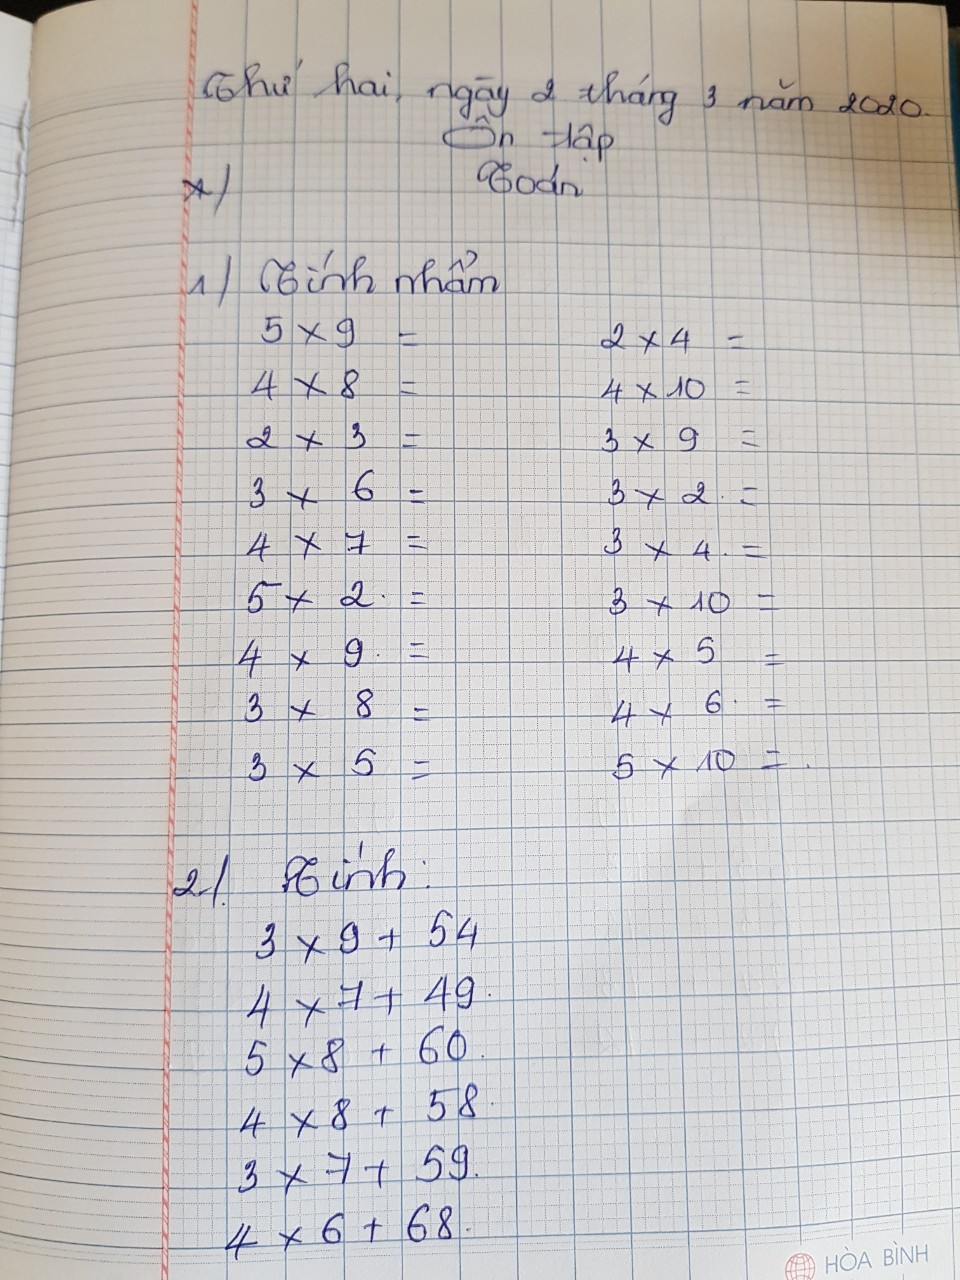 Thứ hai, ngày 2 tháng 3 năm 2020.
Ôn tập
*/ Toán
1/ Tính nhẩm
5 x 9 = 2 x 4 =
4 x 8 = 4 x 10 =
2 x 3 = 3 x 9 =
3 x 6 = 3 x 2. =
4 x 7 = 3 x 4. =
5 x 2. = 3 x 10 =
4 x 9. = 4 x 5 =
3 x 8 = 4 x 6. =
3 x 5 = 5 x 10 = .
2/. Tính:
3 x 9 + 54
4 x 7 + 49.
5 x 8 + 60.
4 x 8 + 58.
3 x 7 + 59.
4 x 6 + 68.
HÒA BÌNH